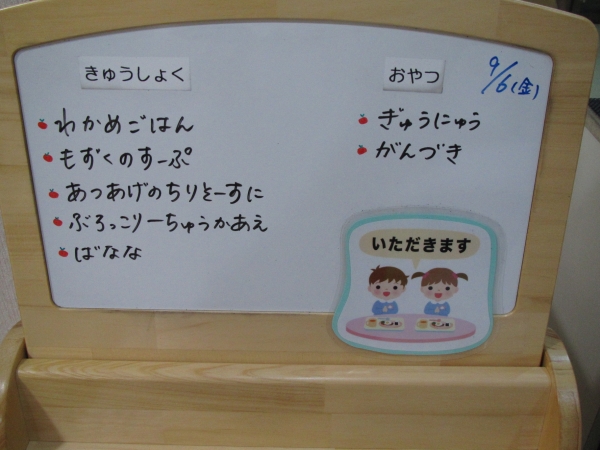 きゅうしょく
わかめごはん
もずくのすーぷ
あつあげのちりそーすに
ぶろっこりーちゅうかあえ
ばなな
おやつ
9/6(金)
ぎゅうにゅう
がんづき
いただきます